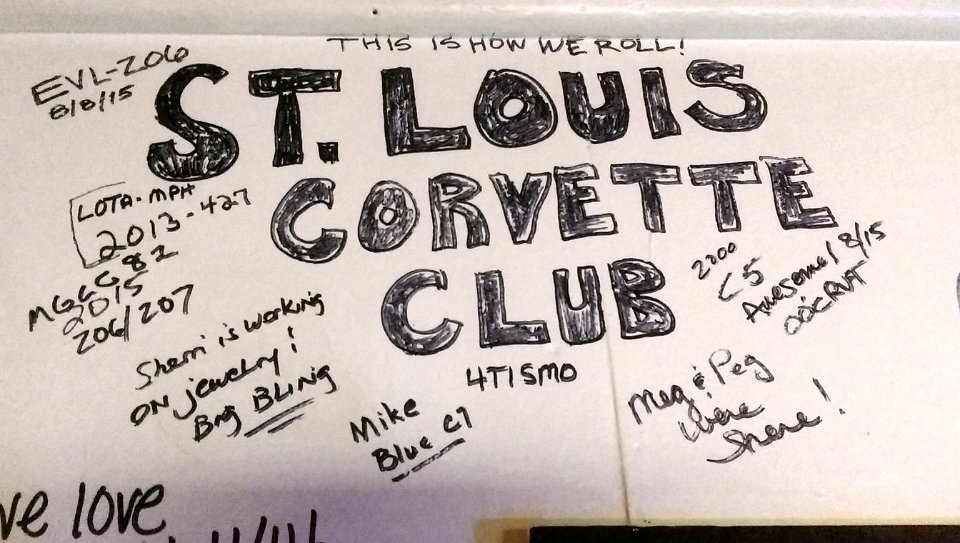 THIS IS HOW WE ROLL!
EVL-Z06
8/8/15
ST. LOUIS
CORVETTE
CLUB
4TISMO
LOTA-MPH
2013-427
2015
Z06/207
Sherri is working
ON jewelry!
Bng BLING
Mike
Blue C7
2000
C5
Awesome! 8/15
00CRVT
Meg & Peg
were
here!
ve love